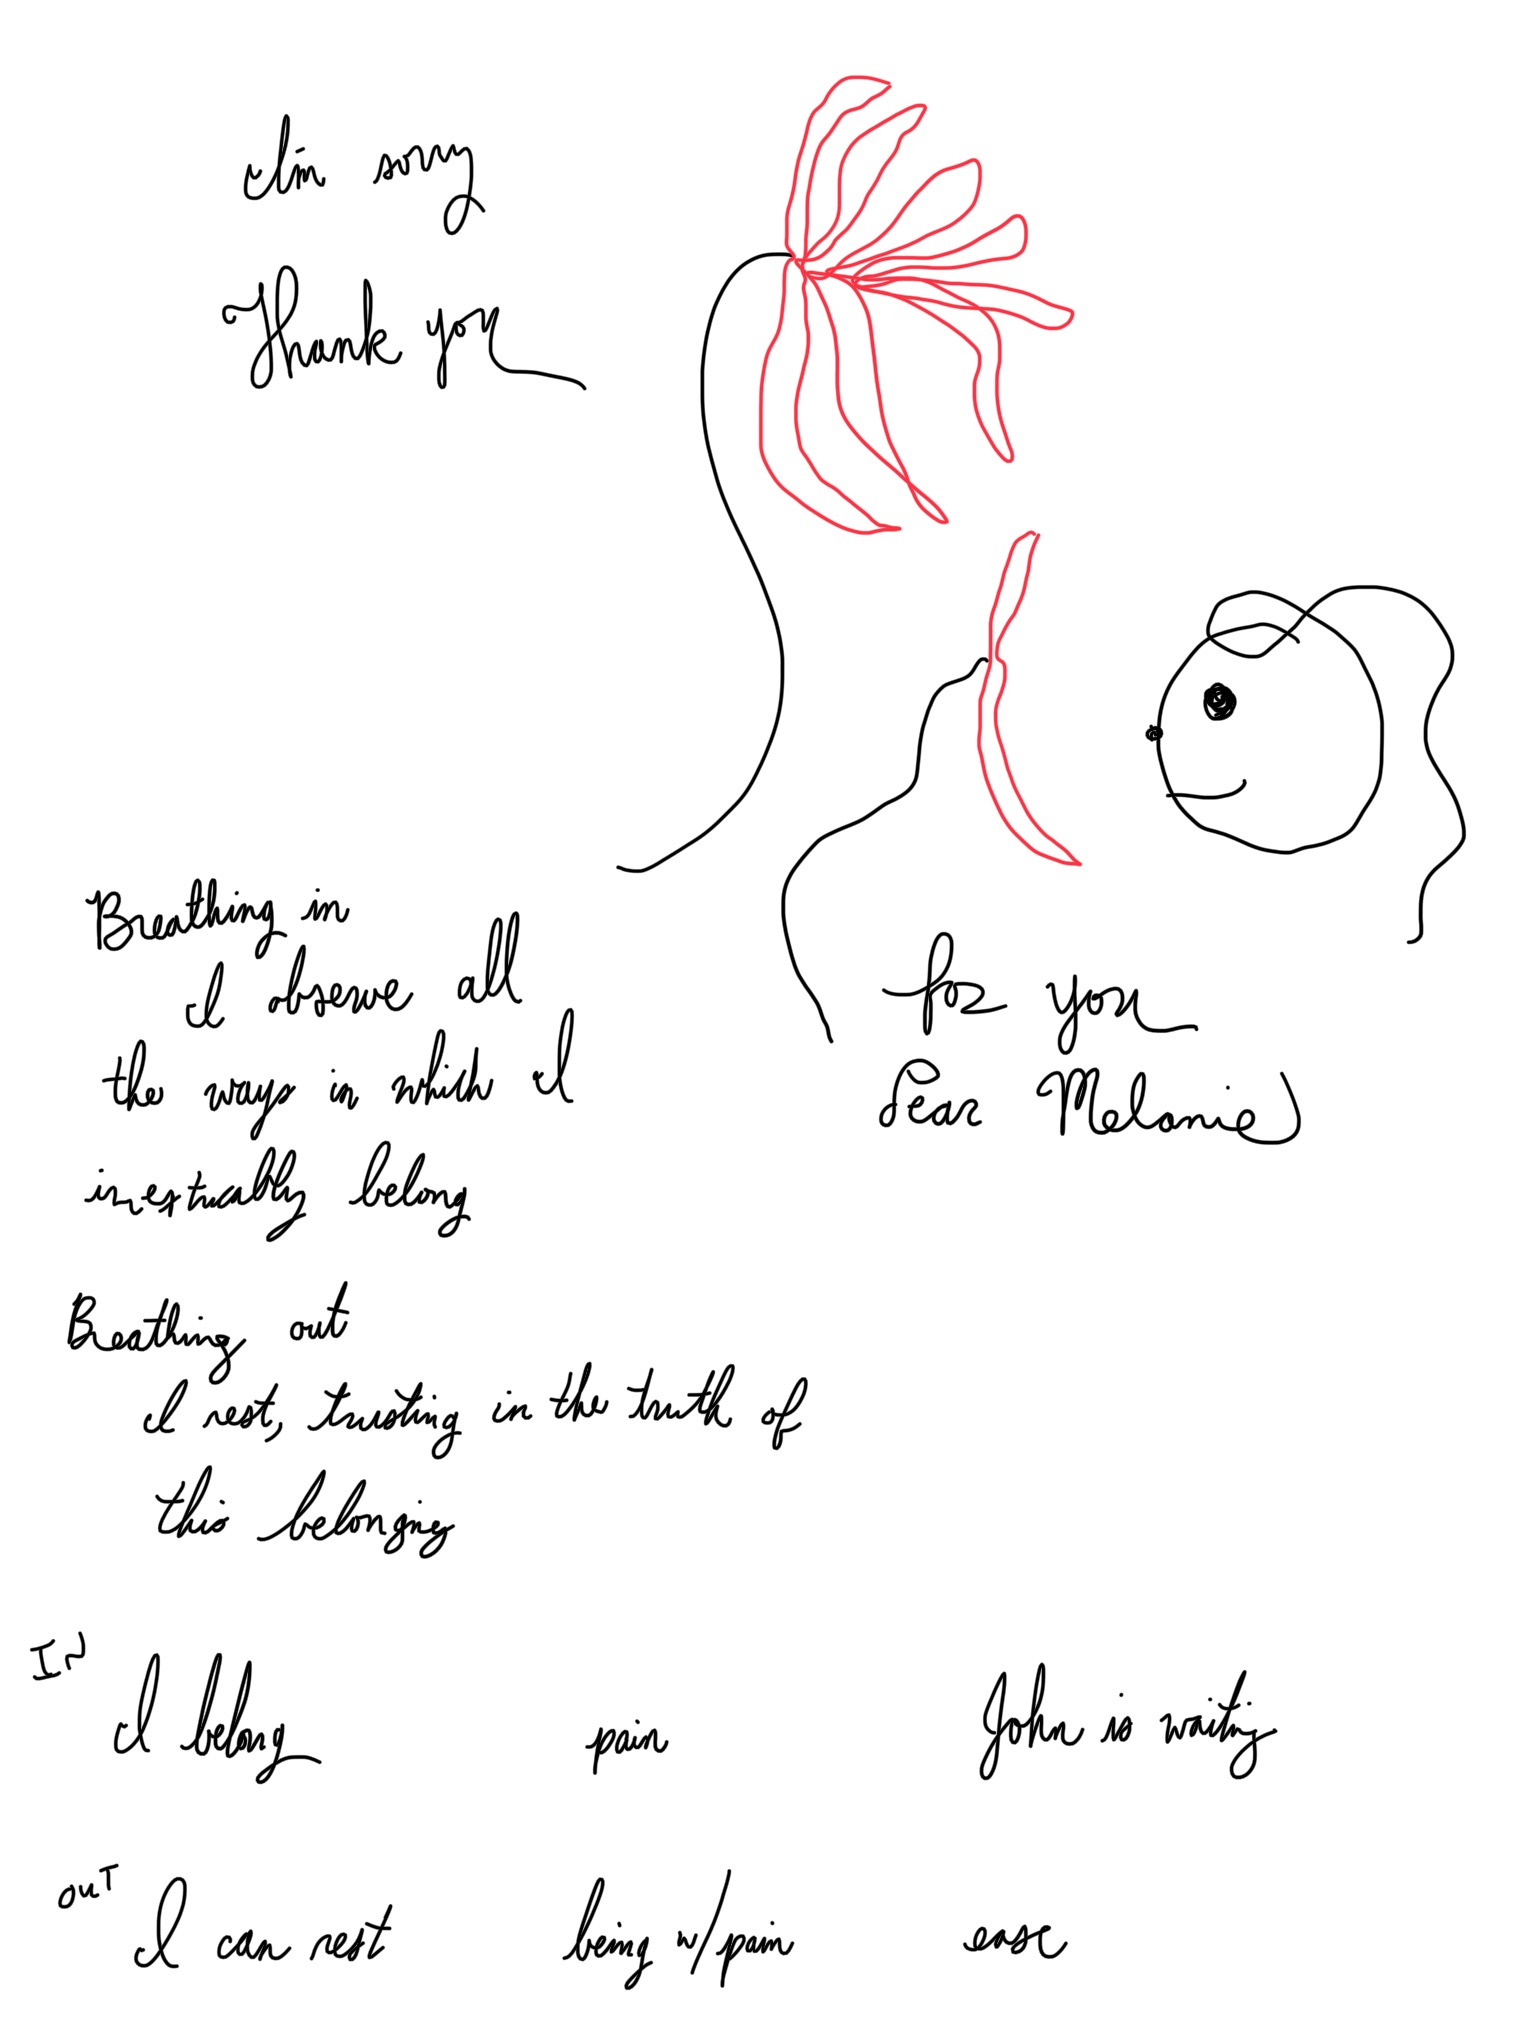 I'm sorry
Thank you
for you
Dear Melanie
Breathing in
I observe all
the ways in which I
inextricably belong
Breathing out
I rest, trusting in the truth of
this belonging
IN
I belong pain John is waiting
OUT
I can rest being w/pain ease